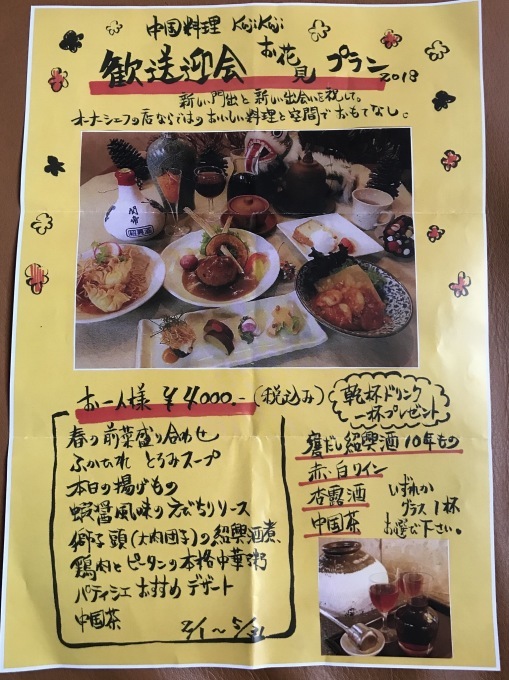 中国料理 KujiKuji
歓送迎会 お花見 プラン 2018
新しい門出と新しい出会いを祝して。
オーナーシェフの店ならではのおいしい料理と空間でおもてなし。
お一人様 ¥4000.- (税込み)
春の前菜盛り合わせ
ふかひれ とろみスープ
本日の揚げもの
蝦醤風味の
獅子頭(大肉団子)の紹興酒煮
鶏肉とピータンの本格中華粥
パティシエおすすめデザート
中国茶
乾杯ドリンク
一杯プレゼント
甕だし紹興酒10年もの
赤・白ワイン
杏露酒
中国茶
いずれか
グラス1杯
お選び下さい。